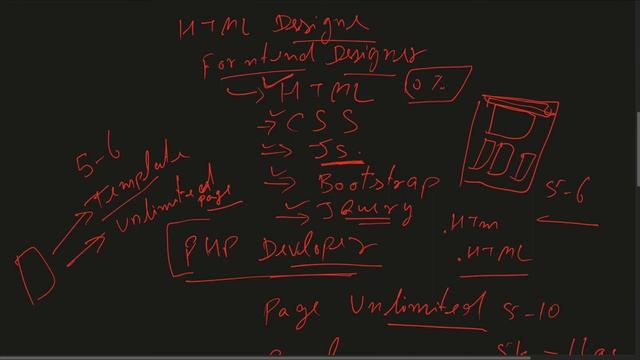 HTML Designe
Forntend Designer
HTML
0%
CSS
Js.
Bootstrap
JQuery
5-6
Template
Unlimited
page
5-6
.HTM
.HTML
PHP Developer
Page Unlimited 5-10